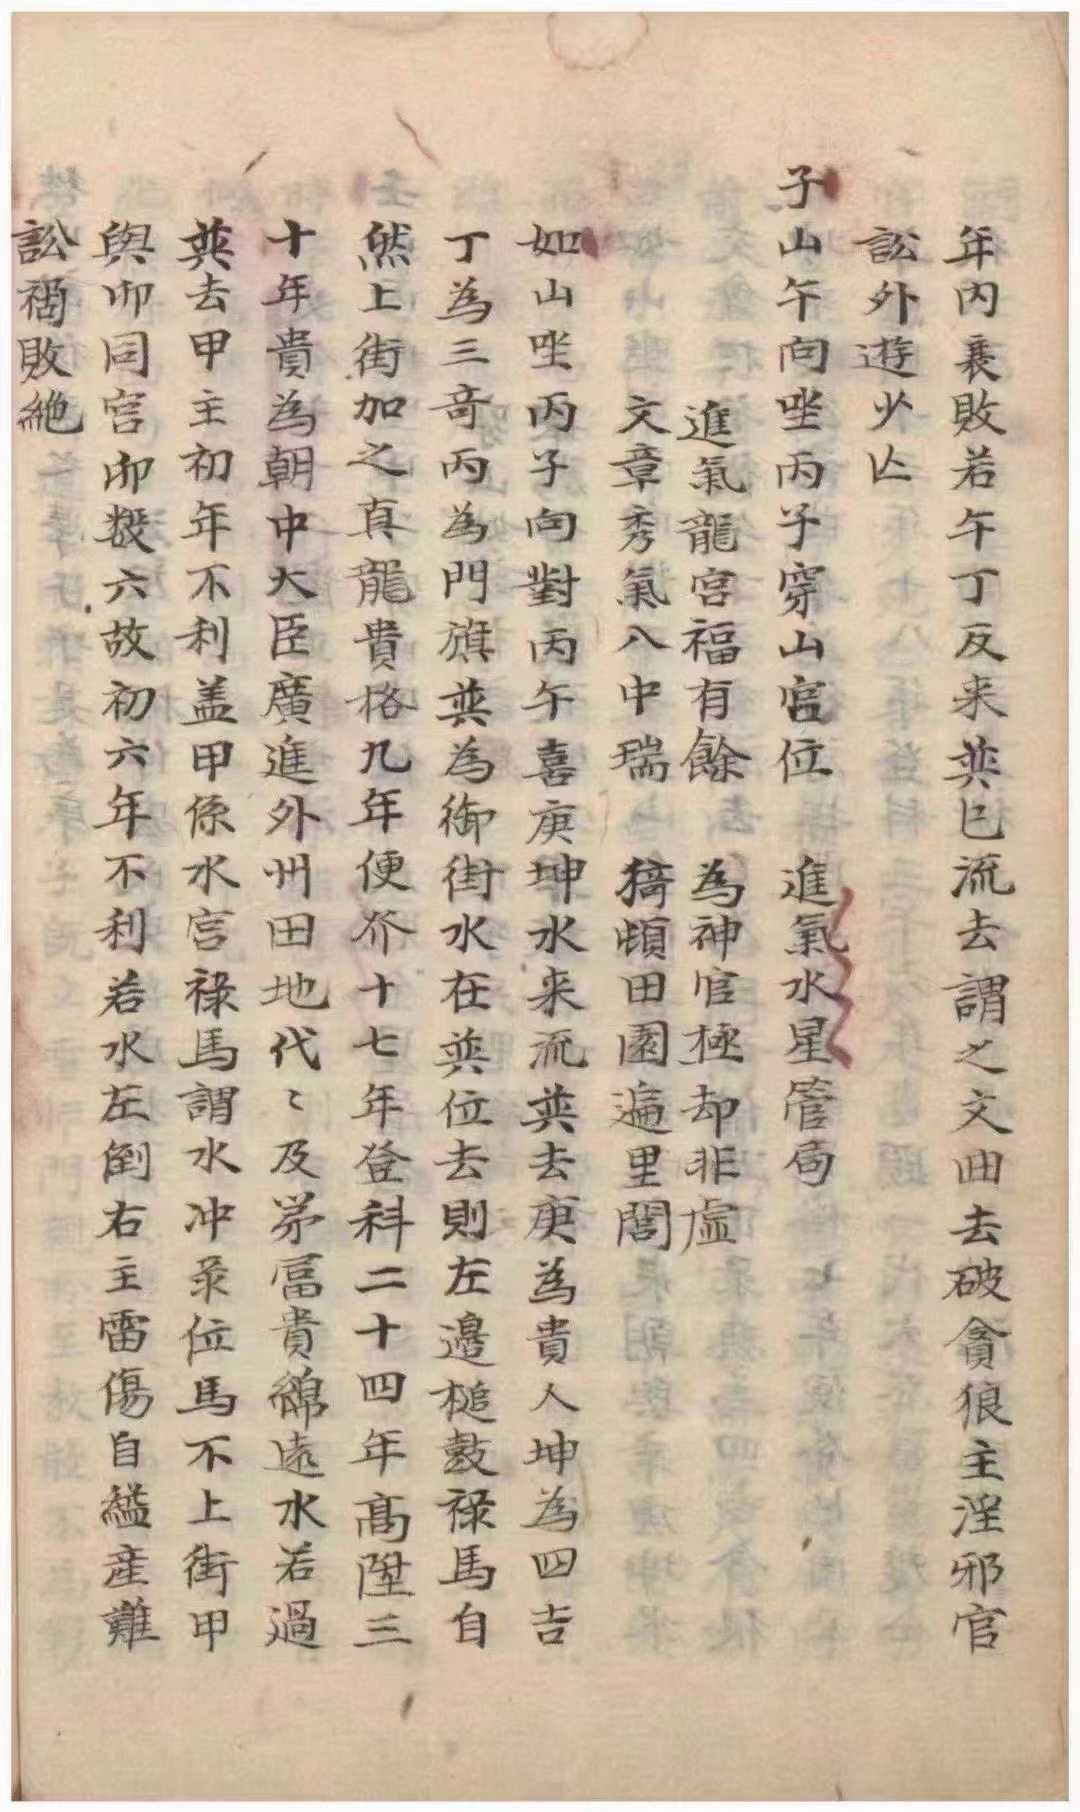 年內衰敗若午丁反来巽巳流去謂之文曲去破貪狼主淫邪官
訟外遊少亡
子山午向坐丙子穿山宮位　進氣水星管局
進氣龍宮福有餘　為神官極却非虛
文章秀氣人中瑞　猗頓田園遍里閭
如山坐丙子向對丙午喜庚坤水来流巽去庚為貴人坤為四吉
丁為三奇丙為門旗巽為御街水在巽位去則左邊槌鼓祿馬自
然上街加之真龍貴格九年便介十七年登科二十四年高陞三
十年貴為朝中大臣廣進外州田地代〻及苐冨貴綿遠水若過
巽去甲主初年不利盖甲係水宮祿馬謂水冲录位馬不上街甲
與卯同宮卯数六故初六年不利若水左倒右主雷傷自縊産難
訟禍敗絶